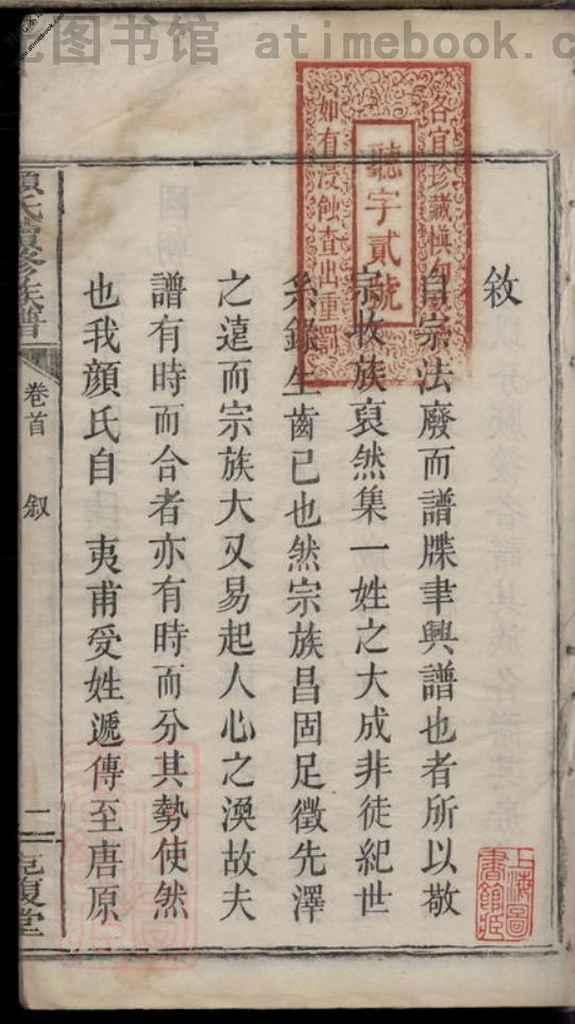 图书馆 atimebook.c
敘
自宗法廢而譜牒聿興譜也者所以敬
宗收族裒然集一姓之大成非徒紀世
系錄生齒已也然宗族昌固足徵先澤
之遠而宗族大又易起人心之渙故夫
譜有時而合者亦有時而分其勢使然
也我顏氏自 夷甫受姓遞傳至唐原
各宜珍藏慎勿
聽字貳號
如有浸蝕查出重罰
顏氏續修族譜
卷首 敘
二
克復堂
上海圖
書館藏